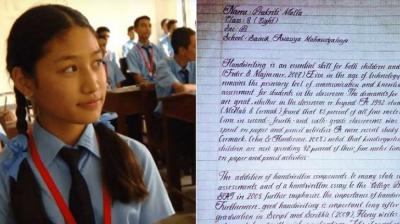 Name: Prakriti Malla
Class: 8 (Eight)
Sec: B
School: Sainik Awasiya Mahavidyalaya
Handwriting is an essential skill for both children and
(Feder & Majnemer, 2007). Even in the age of technology
remains the primary tool of communication and knowledge
assessment for students in the classroom. The demands for
are great, whether in the classroom or beyond. A 1992 study
(McHale & Cermak) found that 85 percent of all fine motor
time in second- fourth- and sixth- grade classrooms was
spent on paper and pencil activities. A more recent study
Cermak, Cohn & Henderson, 2003) noted that kindergarten
children are now spending 42 percent of their fine motor
on paper and pencil activities.
The addition of handwritten components to many state
assessments and of a handwritten essay to the College B
SAT in 2005 further emphasize the importance of hand
Furthermore, good handwriting is important long after
graduation.